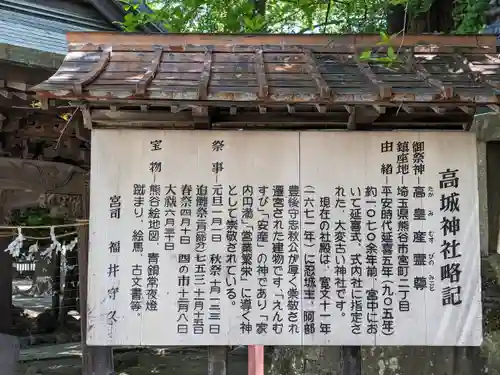 高城神社略記
御祭神―高皇産霊尊
たか み むすび のみこと
鎮座地―埼玉県熊谷市宮町二丁目
由緒―平安時代延喜五年(905年)
約一〇七〇余年前、宮中にお
いて延喜式、式内社に指定さ
れた、大変古い神社です。
現在の社殿は、寛文十一年
(一六七一年)に忍城主、阿部
豊後守忠秋公が厚く崇敬され
還宮された建物です「えんむ
すび」「安産」の神であり「家
内円満」「営業繁栄」に導く神
として崇敬されている。
祭事―元旦一月一日 秋祭十一月八日
追儺祭(二月節分)七五三十一月十五日
春祭四月十日 酉の市十二月八日
大祓六月三十日 〃 十二月三十一日
宝物―熊谷絵地図、青銅常夜燈
蹴まり、絵馬、古文書等。
宮司 福井守久